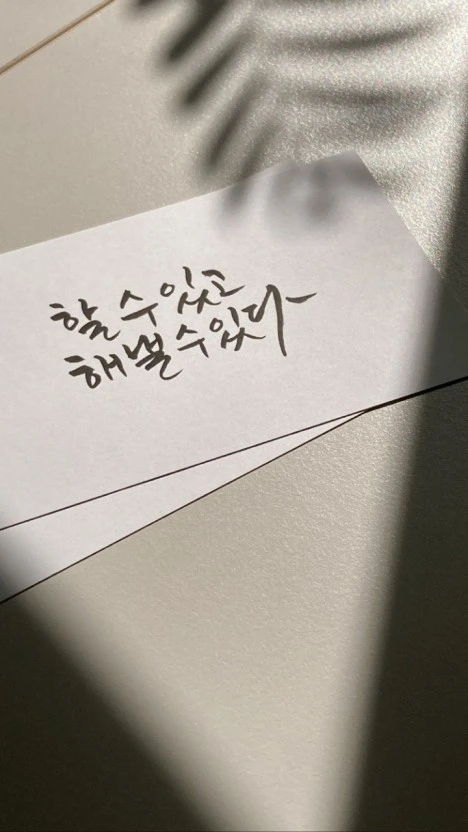 할 수 있고
해낼 수 있다